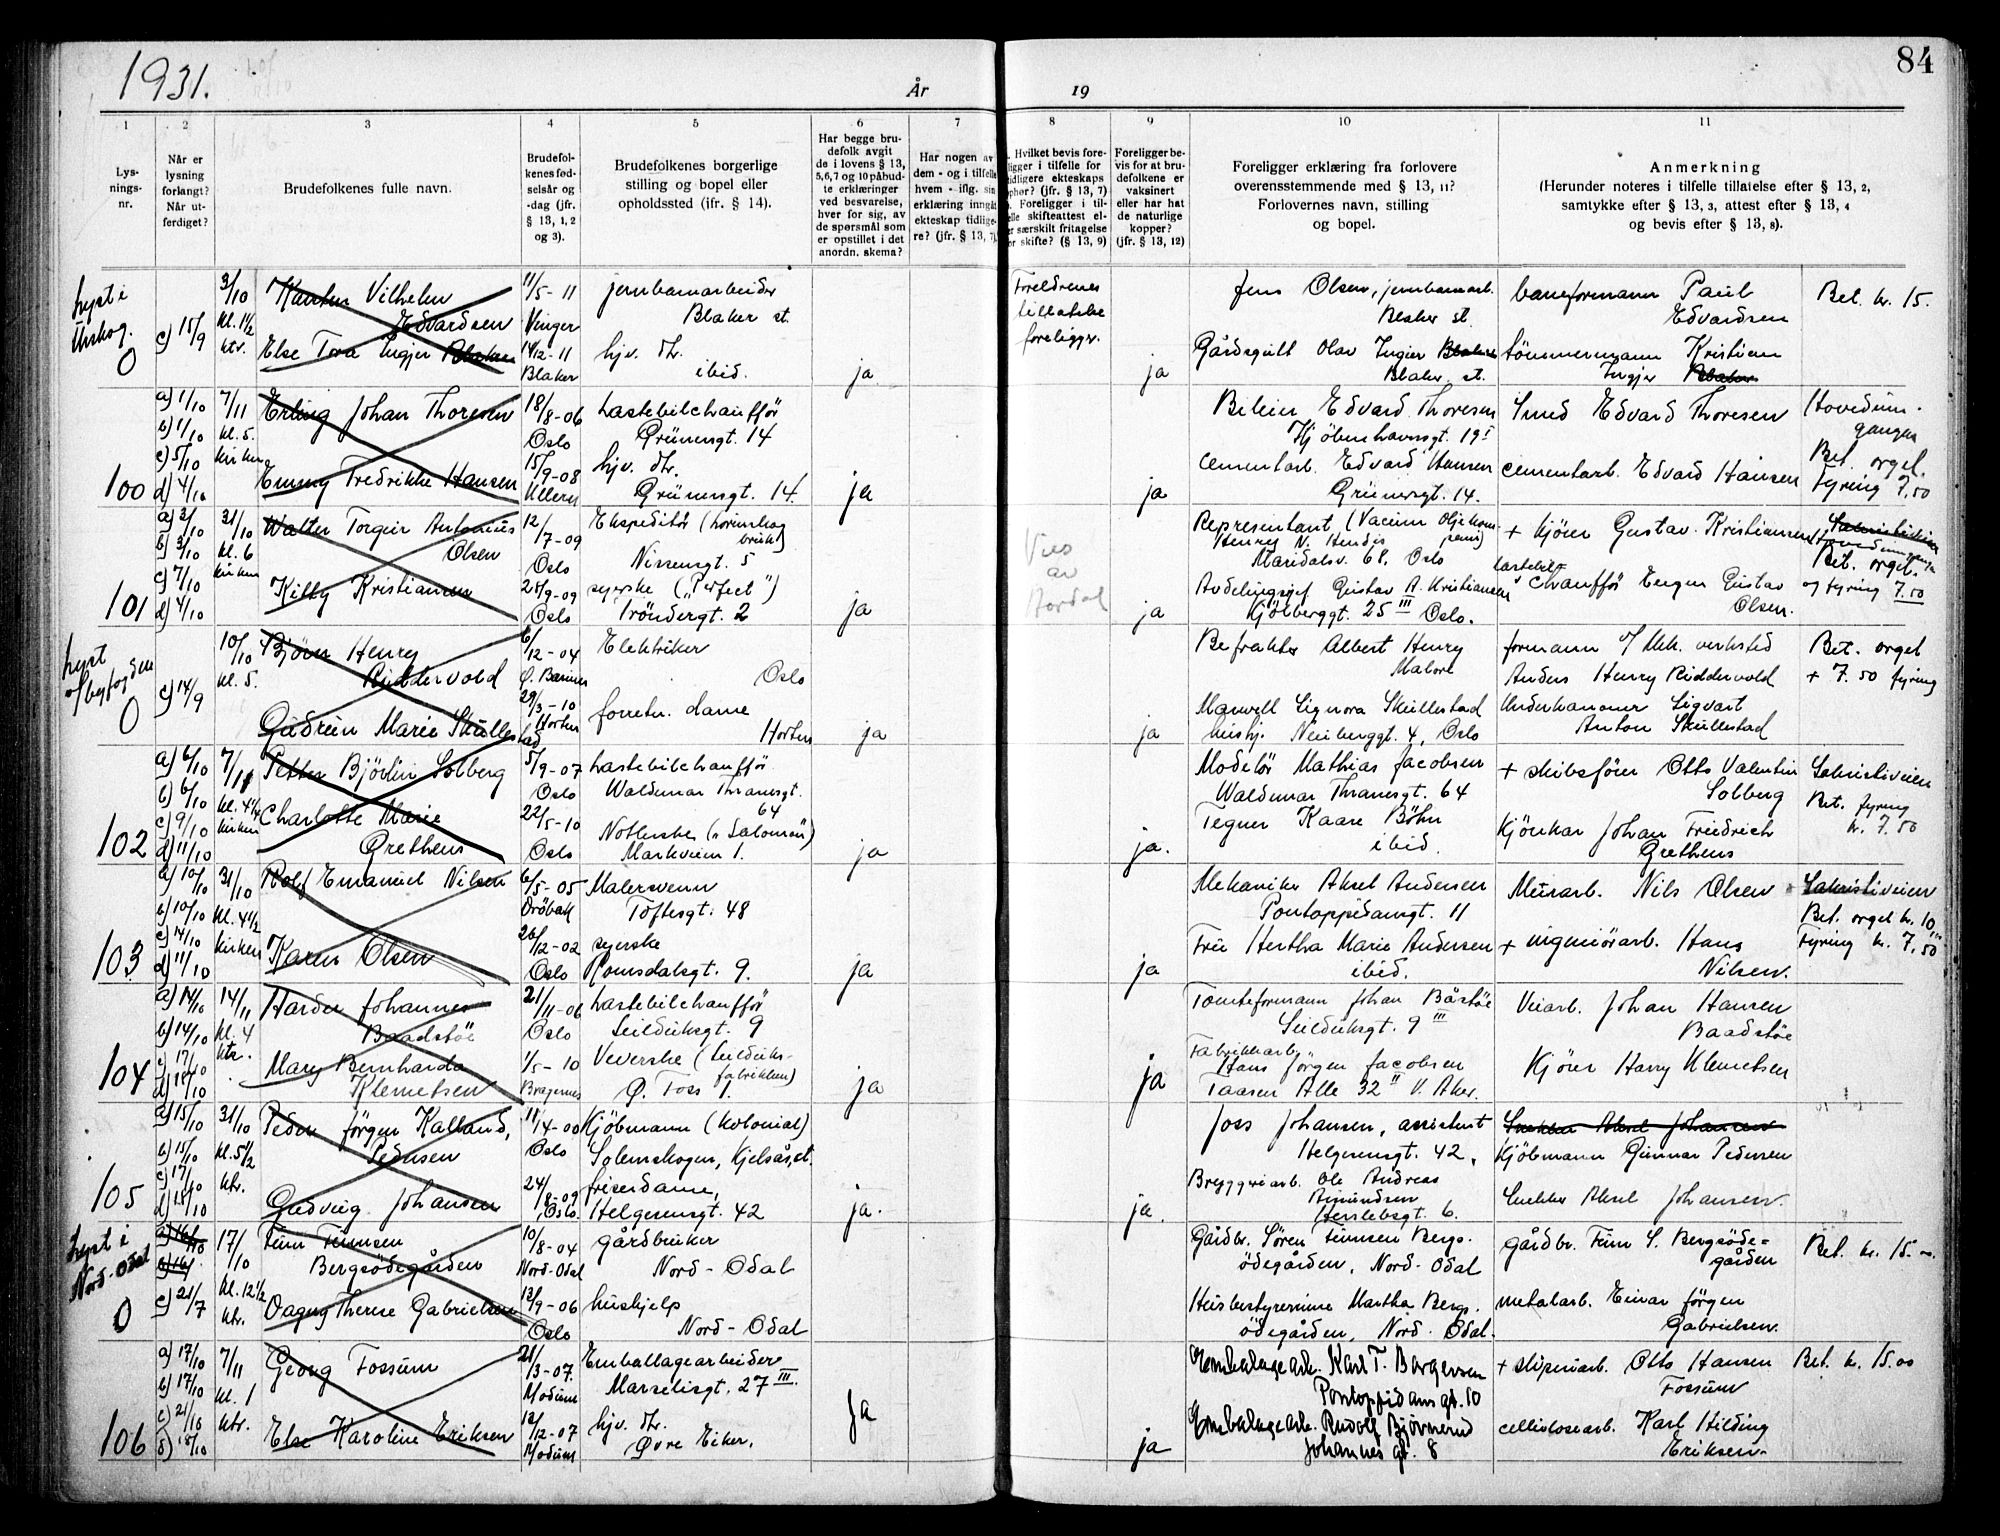 1931.
År
19
84
1
2
3
4
5
6
7
8
9
10
11
Lys-
nings-
nr.
Når er
lysning
forlangt?
Når ut-
ferdiget?
Brudefolkenes fulle navn.
Brudefol-
kenes fød-
selsår og
-dag (jfr.
§ 13, 1, 2
og 3).
Brudefolkenes borgerlige
stilling og bopel eller
opholdssted (jfr. § 14).
Har begge bru-
defolk avgit
de i lovens § 13,
5,6,7 og 10 påbud-
te erklæringer
ved besvarelse,
hver for sig, av
de spørsmål som
er opstillet i det
anordn. skema?
Har nogen av
dem - og i tilfelle
hvem - iflg. sin
erklæring inngåt
ekteskap tidlige-
re? (jfr. § 13, 7).
Hvilket bevis fore-
ligger i tilfelle for
tidligere ekteskaps
ophør? (jfr. § 13, 7)
Foreligger i til-
felle skifteattest el-
er særskilt fritagelse
for skifte? (§ 13, 9)
Foreligger be-
vis for at bru-
defolkene er
vaksinert
eller har hat
de naturlige
kopper?
(jfr. § 13, 12)
Foreligger erklæring fra forlovere
overensstemmende med § 13, 11?
Forlovernes navn, stilling
og bopel.
Anmerkning
(Herunder noteres i tilfelle tillatelse efter § 13, 2,
samtykke efter § 13, 3, attest efter § 13, 4
og bevis efter § 13, 8).
Lyst i
Urskog.
0
c) 15/9
3/10
kl. 1 1/2
ktr.
Karsten Vilhelm
Edvardsen
Else Tora Ingjer Blaker
11/5-11
Vinger
14/12-11
Blaker
jernbanearbeider
Blaker st.
hjv. dtr.
ibid.
ja
Foreldrenes
tillatelse
foreligger.
ja
Jens Olsen, jernbanearb.
Blaker st.
Gårdsgutt Olav Ingjer Blaker
Blaker st.
baneformann Paul
Edvardsen
tömmermann Kristian
Ingjer Blaker
Bet. kr. 15.
100
a) 1/10
b) 1/10
c) 5/10
d) 4/10
7/11
kl. 5.
kirken
Erling Johan Thoresen
Emmy Fredrikke Hansen
18/8-06
Oslo
15/9-08
Ullern
Lastebilchaufför
Grünersgt. 14
hjv. dtr.
Grünersgt. 14.
ja
ja
Bileier Edvard Thoresen
Kjöbenhavnsgt. 19 I
Cementarb. Edvard Hansen
Grünersgt. 14.
Smed Edvard Thoresen
cementarb. Edvard Hansen
Hovedinn-
gangen
Bet. orgel.
Fyring 7.50
101
a) 3/10
b) 3/10
c) 7/10
d) 4/10
31/10
kl. 6
kirken
Walter Torgeir Antonius
Olsen
Killy Kristiansen
12/7-09
Oslo
25/9-09
Oslo
Ekspeditör
syerske ("Perfect")
Tröndergt. 2
Nissensgt. 5
ja
Vies
av
Hordal
ja
Representant (Vacuum Oljekom-
pani)
Maridalsv. 68, Oslo
Avdelingssjef Gustav A. Kristiansen
Kjölberggt. 25 III Oslo.
+ kjörer Gustav Kristiansen
lastebil-
chaufför Eugen Gustav
Olsen.
Sakristiveien
Hovedinngangen
Bet. orgel.
og fyring 7.50
Lyst
af byfogden
0
c) 14/9
10/10
kl. 5.
Björn Henry
Riddervold
Gudrun Marie Skullestad
6/12-04
Ö. Bærum
29/3-10
Horten
Elektriker
Oslo
forretn. dame
Horten
ja
ja
Befrakter Albert Henry
Malore
Maxwell Signora Skullestad
hushj. Neuberggt. 4, Oslo
formann v/ Mek. verksted
Anders Henry Riddervold
Underkanoner Sigvart
Anton Skullestad
Bet. orgel
+ 7.50 fyring
102
a) 6/10
b) 6/10
c) 9/10
d) 11/10
7/11
kl. 4 1/4
kirken
Petter Björlin Solberg
Charlotte Marie
Grethens
5/9-07
Oslo
22/5-10
Oslo
Lastebilchaufför
Waldemar Thranesgt.
64
Notterske ("Salomon")
Markveien 1.
ja
ja.
Modelör Mathias Jacobsen
Waldemar Thranesgt. 64
Tegner Kaare Böhn
ibid.
+ skibsförer Otto Valentin
Solberg
Kjönkar Johan Friedrich
Grethens
Sakristiveien
Bet. fyring
kr. 7.50
103
a) 10/10
b) 10/10
c) 14/10
d) 11/10
31/10
kl. 4 1/2
kirken
Rolf Emanuel Nilsen
Karen Olsen
6/5-05
Dröbak
26/12-02
Oslo
Malersvenn
Toftesgt. 48
syerske
Romsdalsgt. 9.
ja
ja
Mekaniker Aksel Andersen
Pontoppidansgt. 11
Frue Hertha Marie Andersen
ibid.
Murarb. Nils Olsen
+ ingeniörarb. Hans
Nilsen.
Sakristiveien
Bet. orgel kr. 10
Fyring kr. 7.50
104
a) 14/10
b) 14/10
c) 17/10
d) 15/10
14/11
kl. 4
ktr.
Harder Johannes
Baadstöe
Mary Bernharda
Klemetsen
21/11-06
Oslo
1/5-10
Bragernes
Lastebilchaufför
Seilduksgt. 9
Veverske (Seilduks-
fabrikken)
Ö. Foss 1.
ja
ja
Tomteformann Johan Båstöe
Seilduksgt. 9 III
Fabrikkarb.
Hans Jörgen Jacobsen
Taasen Alle 32 II V. Aker.
Veiarb. Johan Hansen
Baadstöe
Kjörer Harry Klemetsen
105
a) 15/10
b) 15/10
c) 17/10
d) 15/10
31/10
kl. 5 1/2
ktr.
Peder Jörgen Kalland,
Pedersen
Gudvieg Johansen
11/4-00
Oslo
24/8-09
Oslo.
Kjöbmann (Kolonial)
Solemskogen, Kjelsås st.
friserdame,
Helgesensgt. 42
ja.
ja.
Joss Johansen, assistent
Helgesensgt. 42.
Bryggeriarb. Ole Andreas
Amundsen
Herslebsgt. 6.
Snekker Aksel Johansen
Kjöbmann Gunnar Pedersen
Snekker Aksel Johansen.
Lyst i
Nord-Odal
0
a) 16/10
b) 16/
c) 21/7
17/10
kl. 12 1/2
ktr.
Finn Finnsen
Bergsödegården
Dagny Therese Gabrielsen
10/8-04
Nord-Odal
13/9-06
Oslo
gårdbruker
Nord-Odal
hushjelp
Nord-Odal
Gårdbr. Sören Finnsen Bergs-
ödegården, Nord-Odal
Husbestyrerinne Martha Bergs-
ödegården, Nord-Odal.
gårdbr. Finn S. Bergsöde-
gården
metalarb. Einar Jörgen
Gabrielsen.
Bet. kr. 15.-
106
a) 17/10
b) 17/10
c) 21/10
d) 18/10
7/11
kl. 1
ktr.
Georg Fossum
Else Karoline Eriksen
21/3-07.
Modum
12/12-07
Modum
Emballagearbeider
Marselisgt. 27 III.
hjv. dtr.
Övre Eiker.
Ja
ja
Emballagearb. Karl T. Borgersen
Pontoppidansgt. 10
Emballagearb. Rudolf Björnerud
Johannes gt. 8
+ sliperiarb. Otto Hansen
Fossum
cellulosearb. Karl Hilding
Eriksen.
Bet. kr. 15.00